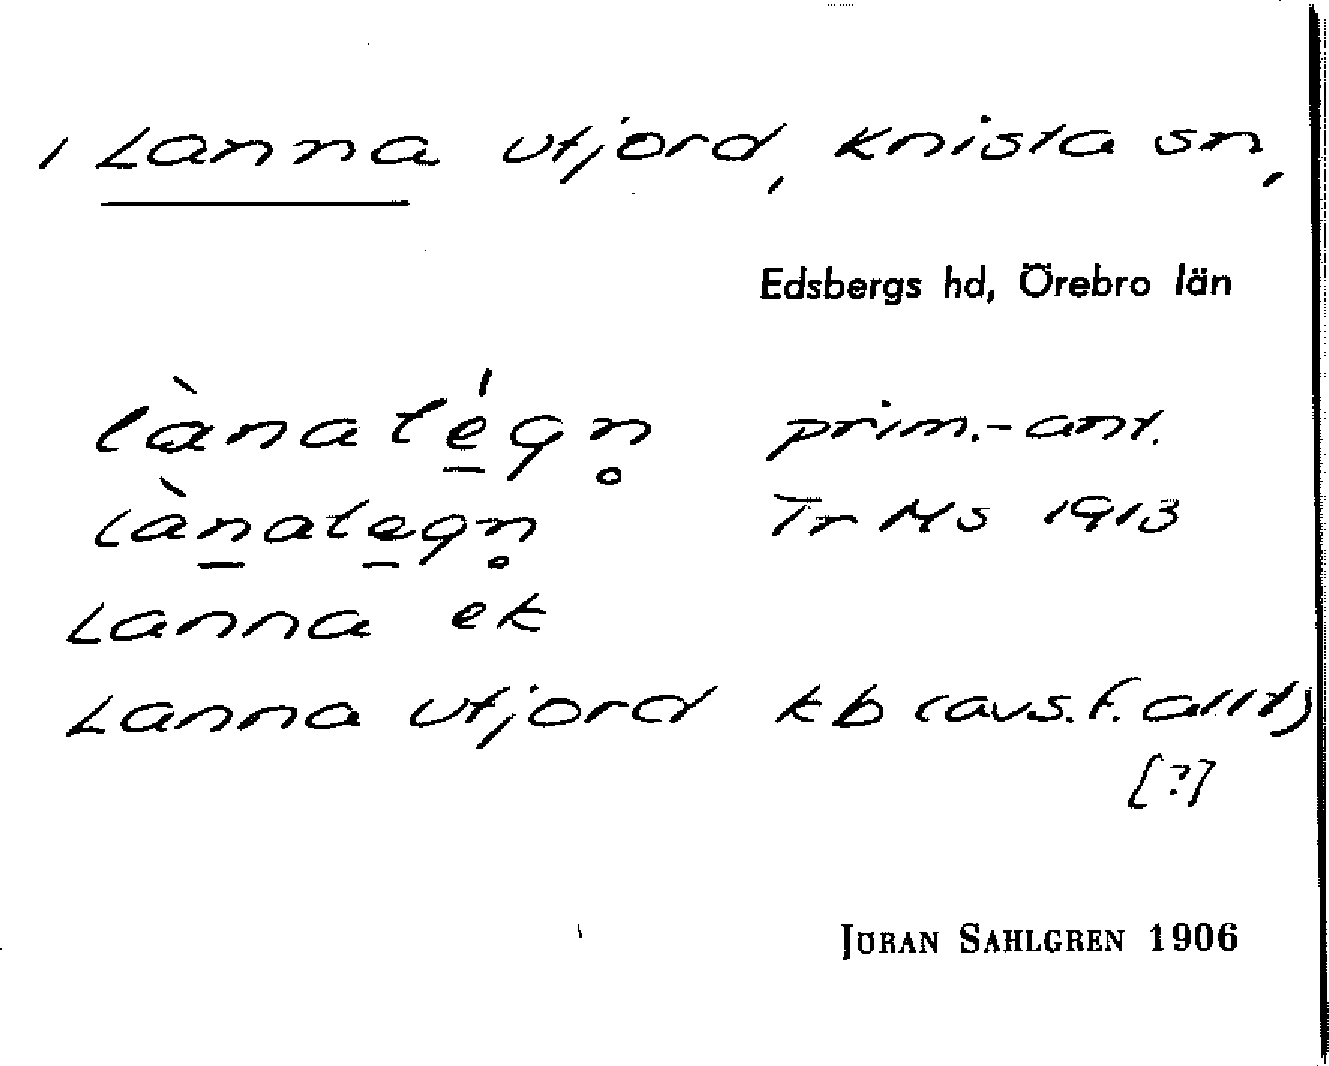 1 Lanna utjord, Knista sn,
Edsbergs hd, Örebro län
lànatég̣n̥ prim.-ant.
lànategn̥ Tr Ms 1913
Lanna ek
Lanna utjord kb (avs. f. allt)
[?]
JÖRAN SAHLGREN 1906